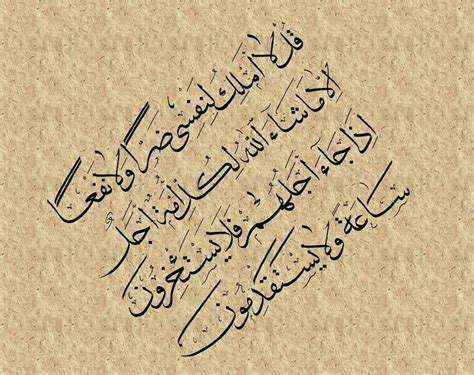 قل لا أملك لنفسي ضرا ولا نفعا
إلا ما شاء الله لكل أمة أجل
إذا جاء أجلهم فلا يستئخرون
ساعة ولا يستقدمون